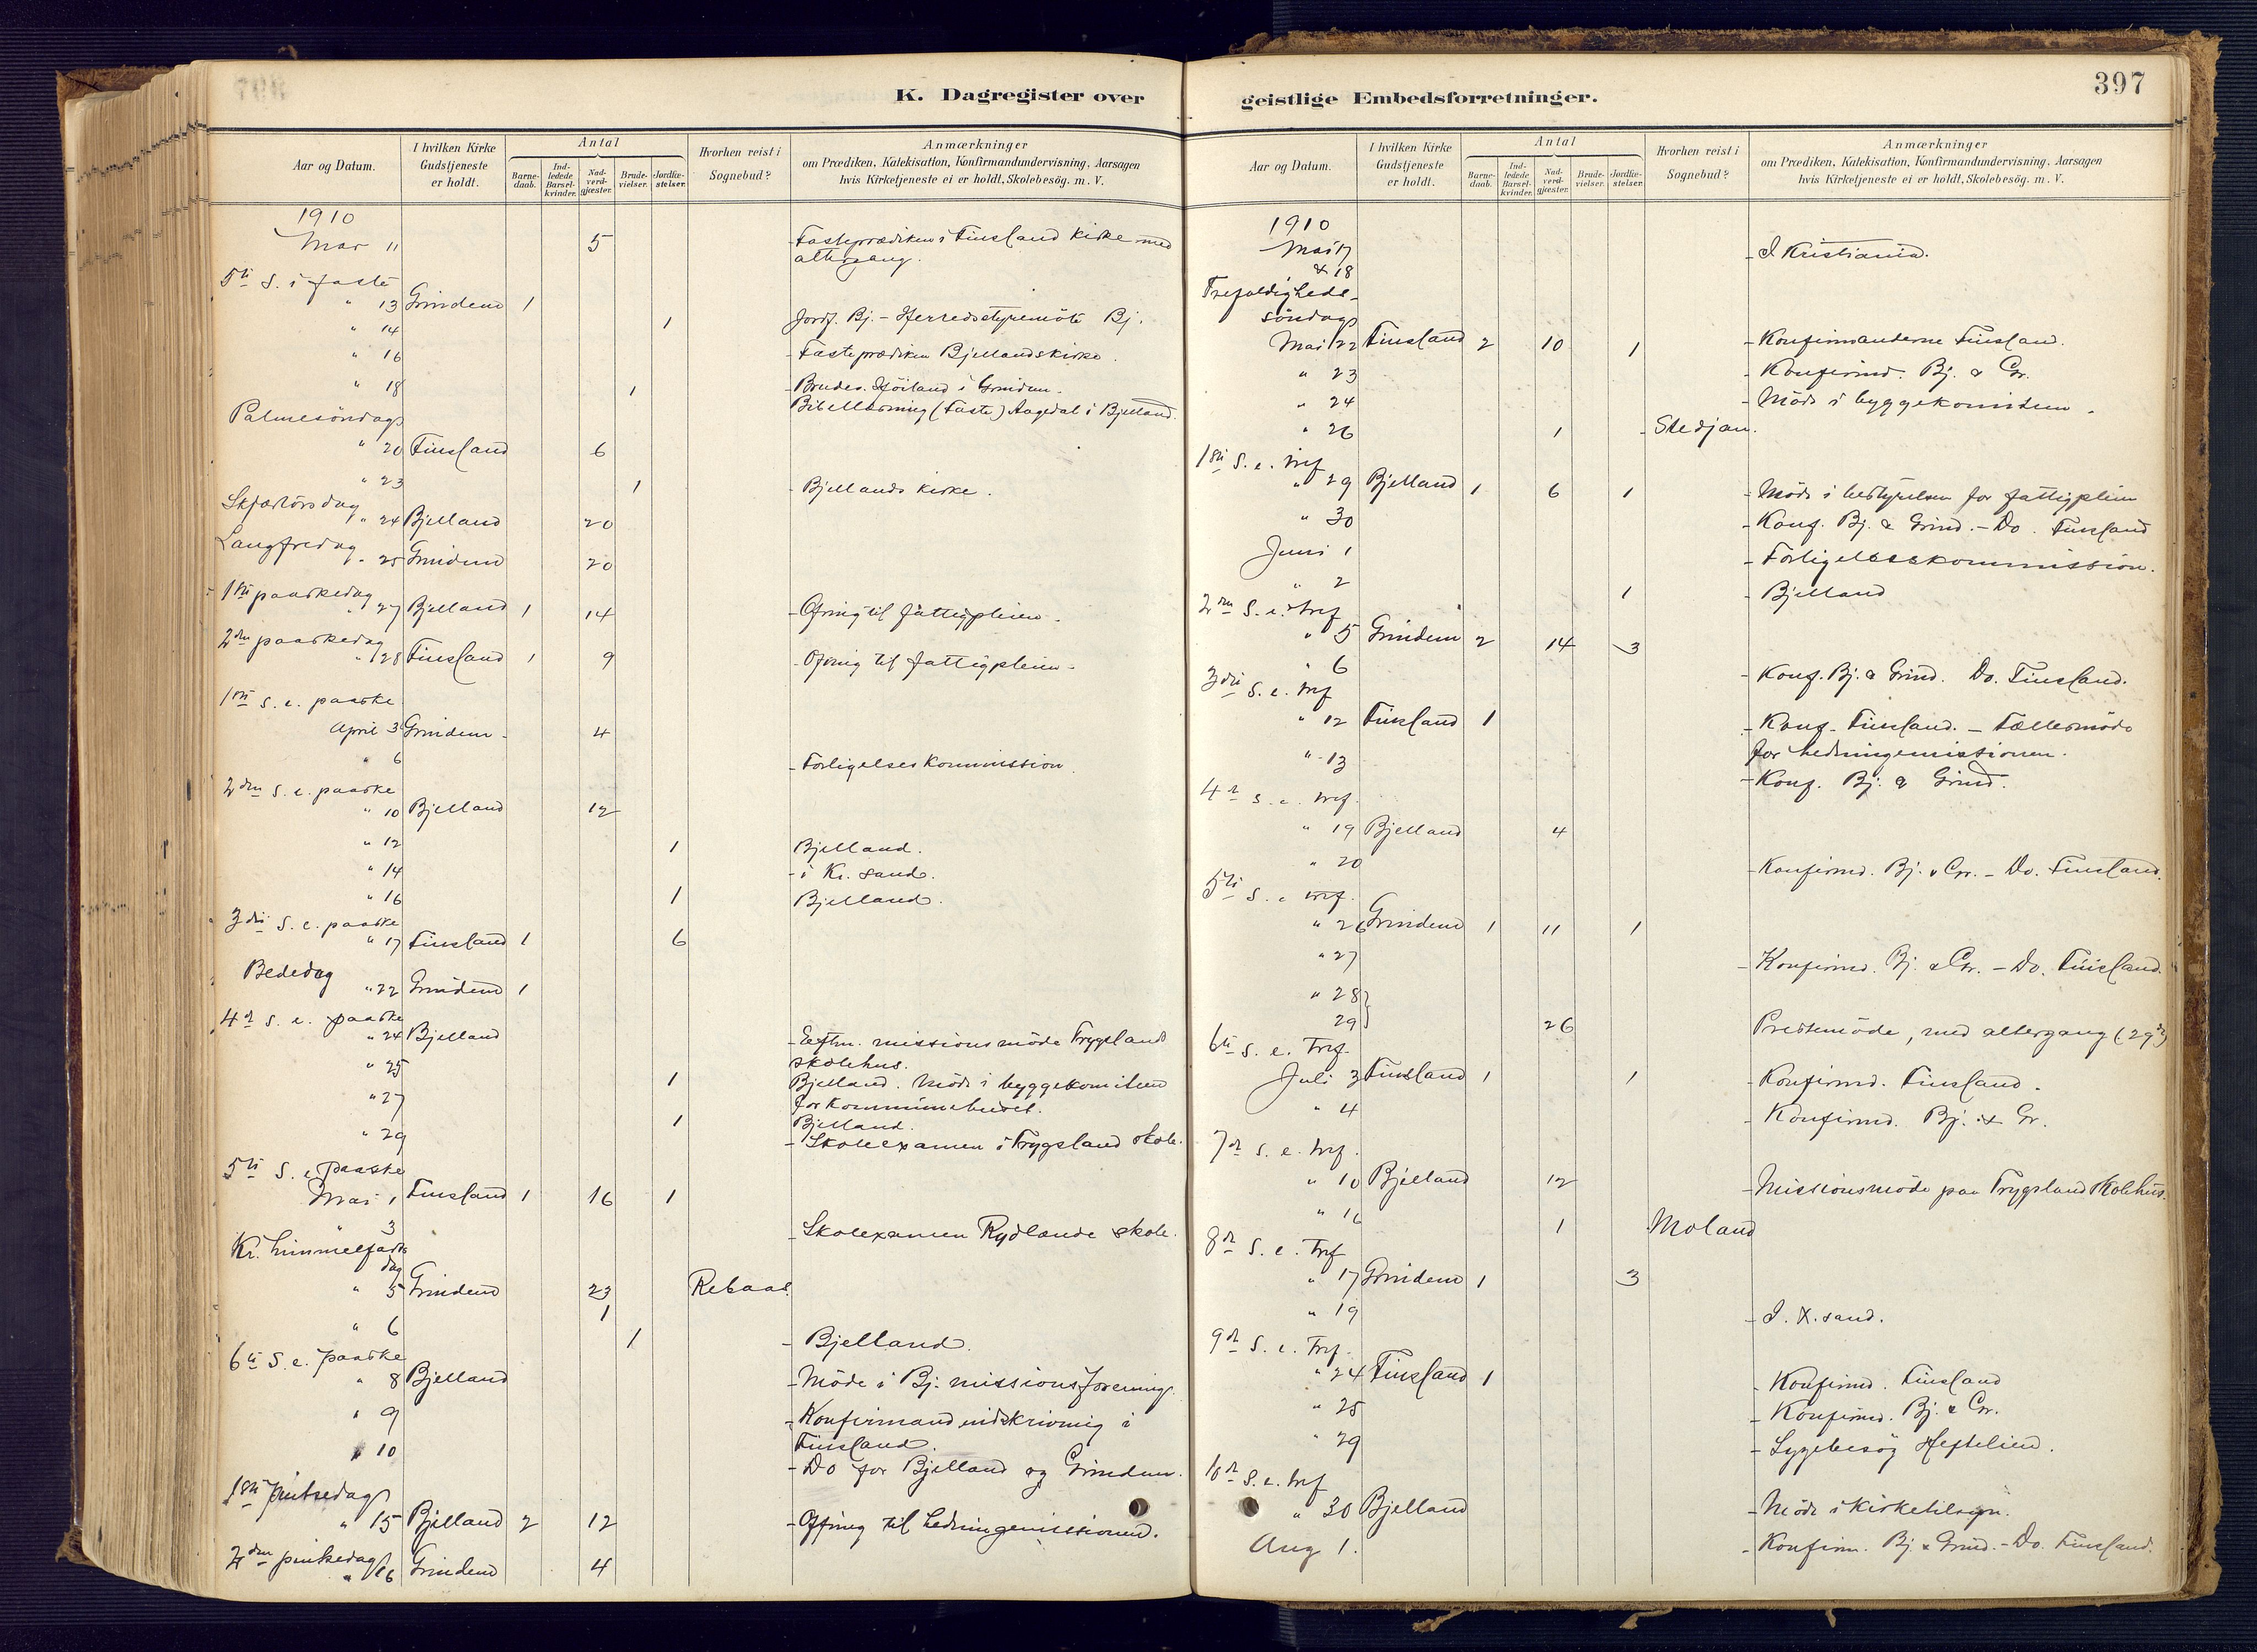 K. Dagregister over
Aar og Datum. | I hvilken Kirke Gudstjeneste er holdt. | Antal | Barnedaab. | Indledede Barselkvinder. | Nadverdgjæster. | Brudevielser. | Jordfæstelser. | Hvorhen reist i Sognebud? | Anmærkninger om Prædiken, Katekisation, Konfirmandundervisning, Aarsagen hvis Kirketjeneste ei er holdt, Skolebesög. m. V.
1910
Mar 11 5 - Fasteprædiken i Finsland kirke med
altergang.
5te S. i faste
" 13 Grindem 1
" 14 1 Jordf. Bj. - Herredsstyremöte Bj.
" 16 - Fasteprædiken Bjellandskirke.
" 18 1 - Brudev. i Grindem.
Bibellæsning (Faste) Aagedal i Bjelland.
Palmesöndag
" 20 Finsland 6
" 23 1 - Bjellands kirke.
Skjærtörsdag
" 24 Bjelland 20
Langfredag
" 25 Grindem 20
1ste paaskedag
" 27 Bjelland 1 14 - Ofring til fattigpleien.
2den paaskedag
" 28 Finsland 1 9 - Ofring til fattigpleien.
1ste S. e. paaske
April 3 Grindem - 4
" 6 - Forligelseskommission.
2den S. e. paaske
" 10 Bjelland 12
" 12 1 Bjelland.
" 14 - i Kr. sand.
" 16 1 Bjelland.
3die S. e. paaske
" 17 Finsland 1 6
Bededag
" 22 Grindem 1
4de S. e. paaske
" 24 Bjelland - Eftm. missionsmöde Trygsland
skolehus.
" 25 1 Bjelland. Möde i byggekomiteen
" 27 for kommunehuset.
1 Bjelland.
" 29 - Skolexamen i Trygsland skole.
5te S. e. paaske
Mai 1 Finsland 1 16 1
" 3 - Skolexamen Rydlande skole.
Kr. himmelfarts
dag
" 5 Grindem 23 Rebaas.
1
" 6 1 - Bjelland.
6te S. e. paaske
" 8 Bjelland - Möde i Bj. missionsforening.
" 9 - Konfirmandindskrivning i
Finsland.
" 10 - Do for Bjelland og Grindem.
1ste pintsedag
" 15 Bjelland 2 12 - Offring til hedningemissionen.
2den pintsedag
" 16 Grindem 4
397
geistlige Embedsforretninger.
Aar og Datum. | I hvilken Kirke Gudstjeneste er holdt. | Antal | Barnedaab. | Indledede Barselkvinder. | Nadverdgjæster. | Brudevielser. | Jordfæstelser. | Hvorhen reist i Sognebud? | Anmærkninger om Prædiken, Katekisation, Konfirmandundervisning, Aarsagen hvis Kirketjeneste ei er holdt, Skolebesög. m. V.
1910
Mai 17 - I Kristiania.
& 18
Trefoldigheds-
söndag
Mai 22 Finsland 2 10 1 - Konfirmanderne Finsland.
" 23 - Konfirmd. Bj. & Gr.
" 24 - Möde i byggekomiteen.
" 26 1 - Stedjan.
1ste S. e. tref
" 29 Bjelland 1 6 1 - Möde i bestyrelsen for fattigpleien
" 30 - Konf. Bj. & Grind. - Do. Finsland
Juni 1 - Forligelseskommission.
" 2 1 - Bjelland
2den S. e. tref
" 5 Grindem 2 14 3
" 6 - Konf. Bj. & Grind. Do. Finsland.
3die S. e. tref
" 12 Finsland 1 - Konf. Finsland. - Fællesmöde
for hedningemissionen.
" 13 - Konf. Bj. & Grind.
4de S. e. tref.
" 19 Bjelland 4
" 20 Konfirmd. Bj. & Gr. - Do. Finsland.
5te S. e tref.
" 26 Grindem 1 11 1
" 27 - Konfirmd. Bj. & Gr. - Do. Finsland.
" 28
29 26 Prestemöde, med altergang (29de)
6te S. e. Tref.
Juli 3 Finsland 1 1 - Konfirmd. Finsland.
" 4 - Konfirmd. Bj. & Gr.
7de S. e. tref.
" 10 Bjelland 12 - Missionsmöde paa Trygsland Skolehus.
" 16 1 Moland
8de S. e. Tref
" 17 Grindem 1 3
" 19 - I. X.sand.
9de S. e. Tref.
" 24 Finsland 1 - Konfirmd. Finsland
" 25 - Konfirmd. Bj. & Gr.
" 29 - Sygebesög Heftelien.
10de S. e. tref
" 30 Bjelland - Möde i kirketilsyn.
Aug 1. - Konfirm. Bj. & Grind. - Do. Finsland.